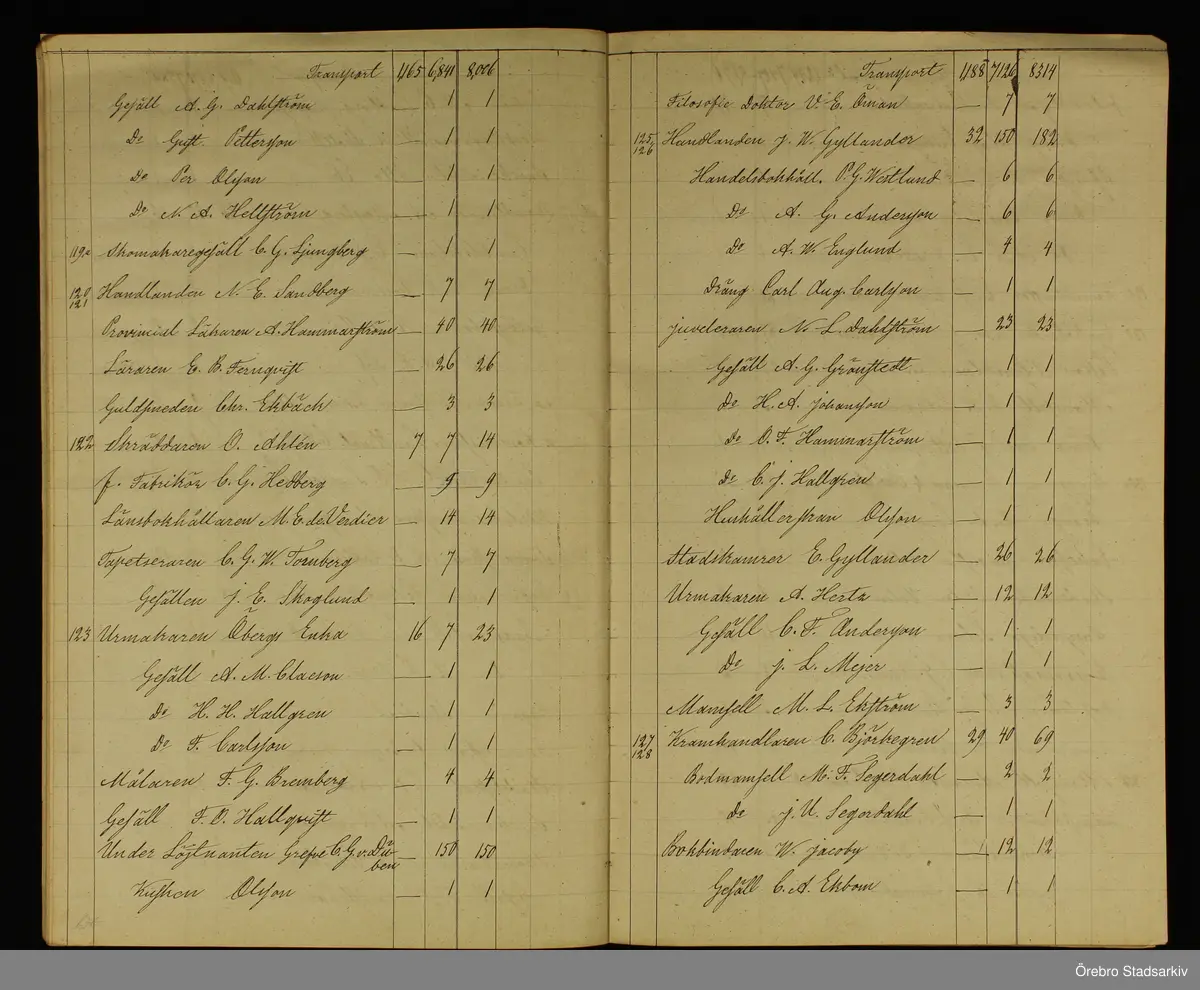 Transport 1,165 6,841 8,006
Gesäll A. G. Dahlström — 1 1
Do Gust. Pettersson — 1 1
Do Per Olsson — 1 1
Do N. A. Hellström — 1 1
119a Skomakaregesäll C. G. Ljungberg — 1 1
120 121 Handlanden N. E. Sandberg — 7 7
Provincial Läkaren A. Hammarström — 40 40
Läraren E. B. Fernqvist — 26 26
Guldsmeden Chr. Ekbäck — 3 3
122 Skräddaren O. Ahlén 7 7 14
f. Fabrikör C. G. Hedberg — 9 9
Länsbokhållaren M. E. de Verdier — 14 14
Tapetseraren C. G. W. Tornberg — 7 7
Gesällen J. E. Skoglund — 1 1
123 Urmakaren Öbergs Enka 16 7 23
Gesäll A. M. Claeson — 1 1
Do H. H. Hallgren — 1 1
Do F. Carlsson — 1 1
Målaren F. G. Bremberg — 4 4
Gesäll F. O. Hallqvist — 1 1
Under Löjtnanten Grefve C. G. v. Düben — 150 150
Kusken Olsson — 1 1
Transport 1188 7126 8314
Filosofie Doktor V. E. Öman — 7 7
125 126 Handlanden J. W. Gyllander 32 150 182
Handelsbokhåll. P. G. Westlund — 6 6
Do A. G. Andersson — 6 6
Do A. W. Englund — 4 4
Dräng Carl Aug. Carlsson — 1 1
Juveleraren N. L. Dahlström — 23 23
Gesäll A. G. Grönstedt — 1 1
Do H. A. Johansson — 1 1
Do O. F. Hammarström — 1 1
Do C. J. Hallgren — 1 1
Hushållerskan Olsson — 1 1
Stadskamrer E. Gyllander — 26 26
Urmakaren A. Hertz — 12 12
Gesäll C. F. Andersson — 1 1
Do J. L. Mejer — 1 1
Mamsell M. L. Ekström — 3 3
127 128 Kramhandlaren C. Björkegren 29 40 69
Bodmamsell M. F. Segerdahl — 2 2
Do J. U. Segerdahl — 1 1
Bokbindaren W. Jacoby — 12 12
Gesäll C. A. Ekbom — 1 1
Örebro Stadsarkiv